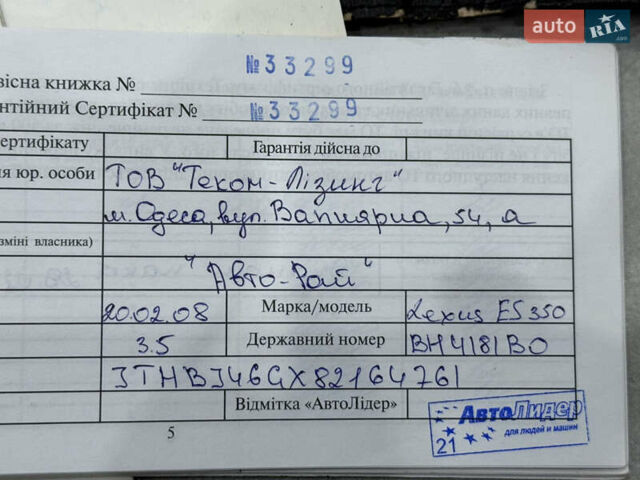 auto RIA.com
№ 33299
вісна книжка №
№ 33299
нтійний Сертифікат №
ертифікату Гарантія дійсна до
ля юр. особи ТОВ "Теком-Лізинг"
м. Одеса, вул. Вапнярна, 54, а
зміні власника)
"Авто-Рай"
20.02.08 Марка/модель Lexus ES350
3.5 Державний номер ВН4181ВО
JTHBJ46GX82164761
Відмітка «АвтоЛідер»
АвтоЛидер
для людей и машин
21
5